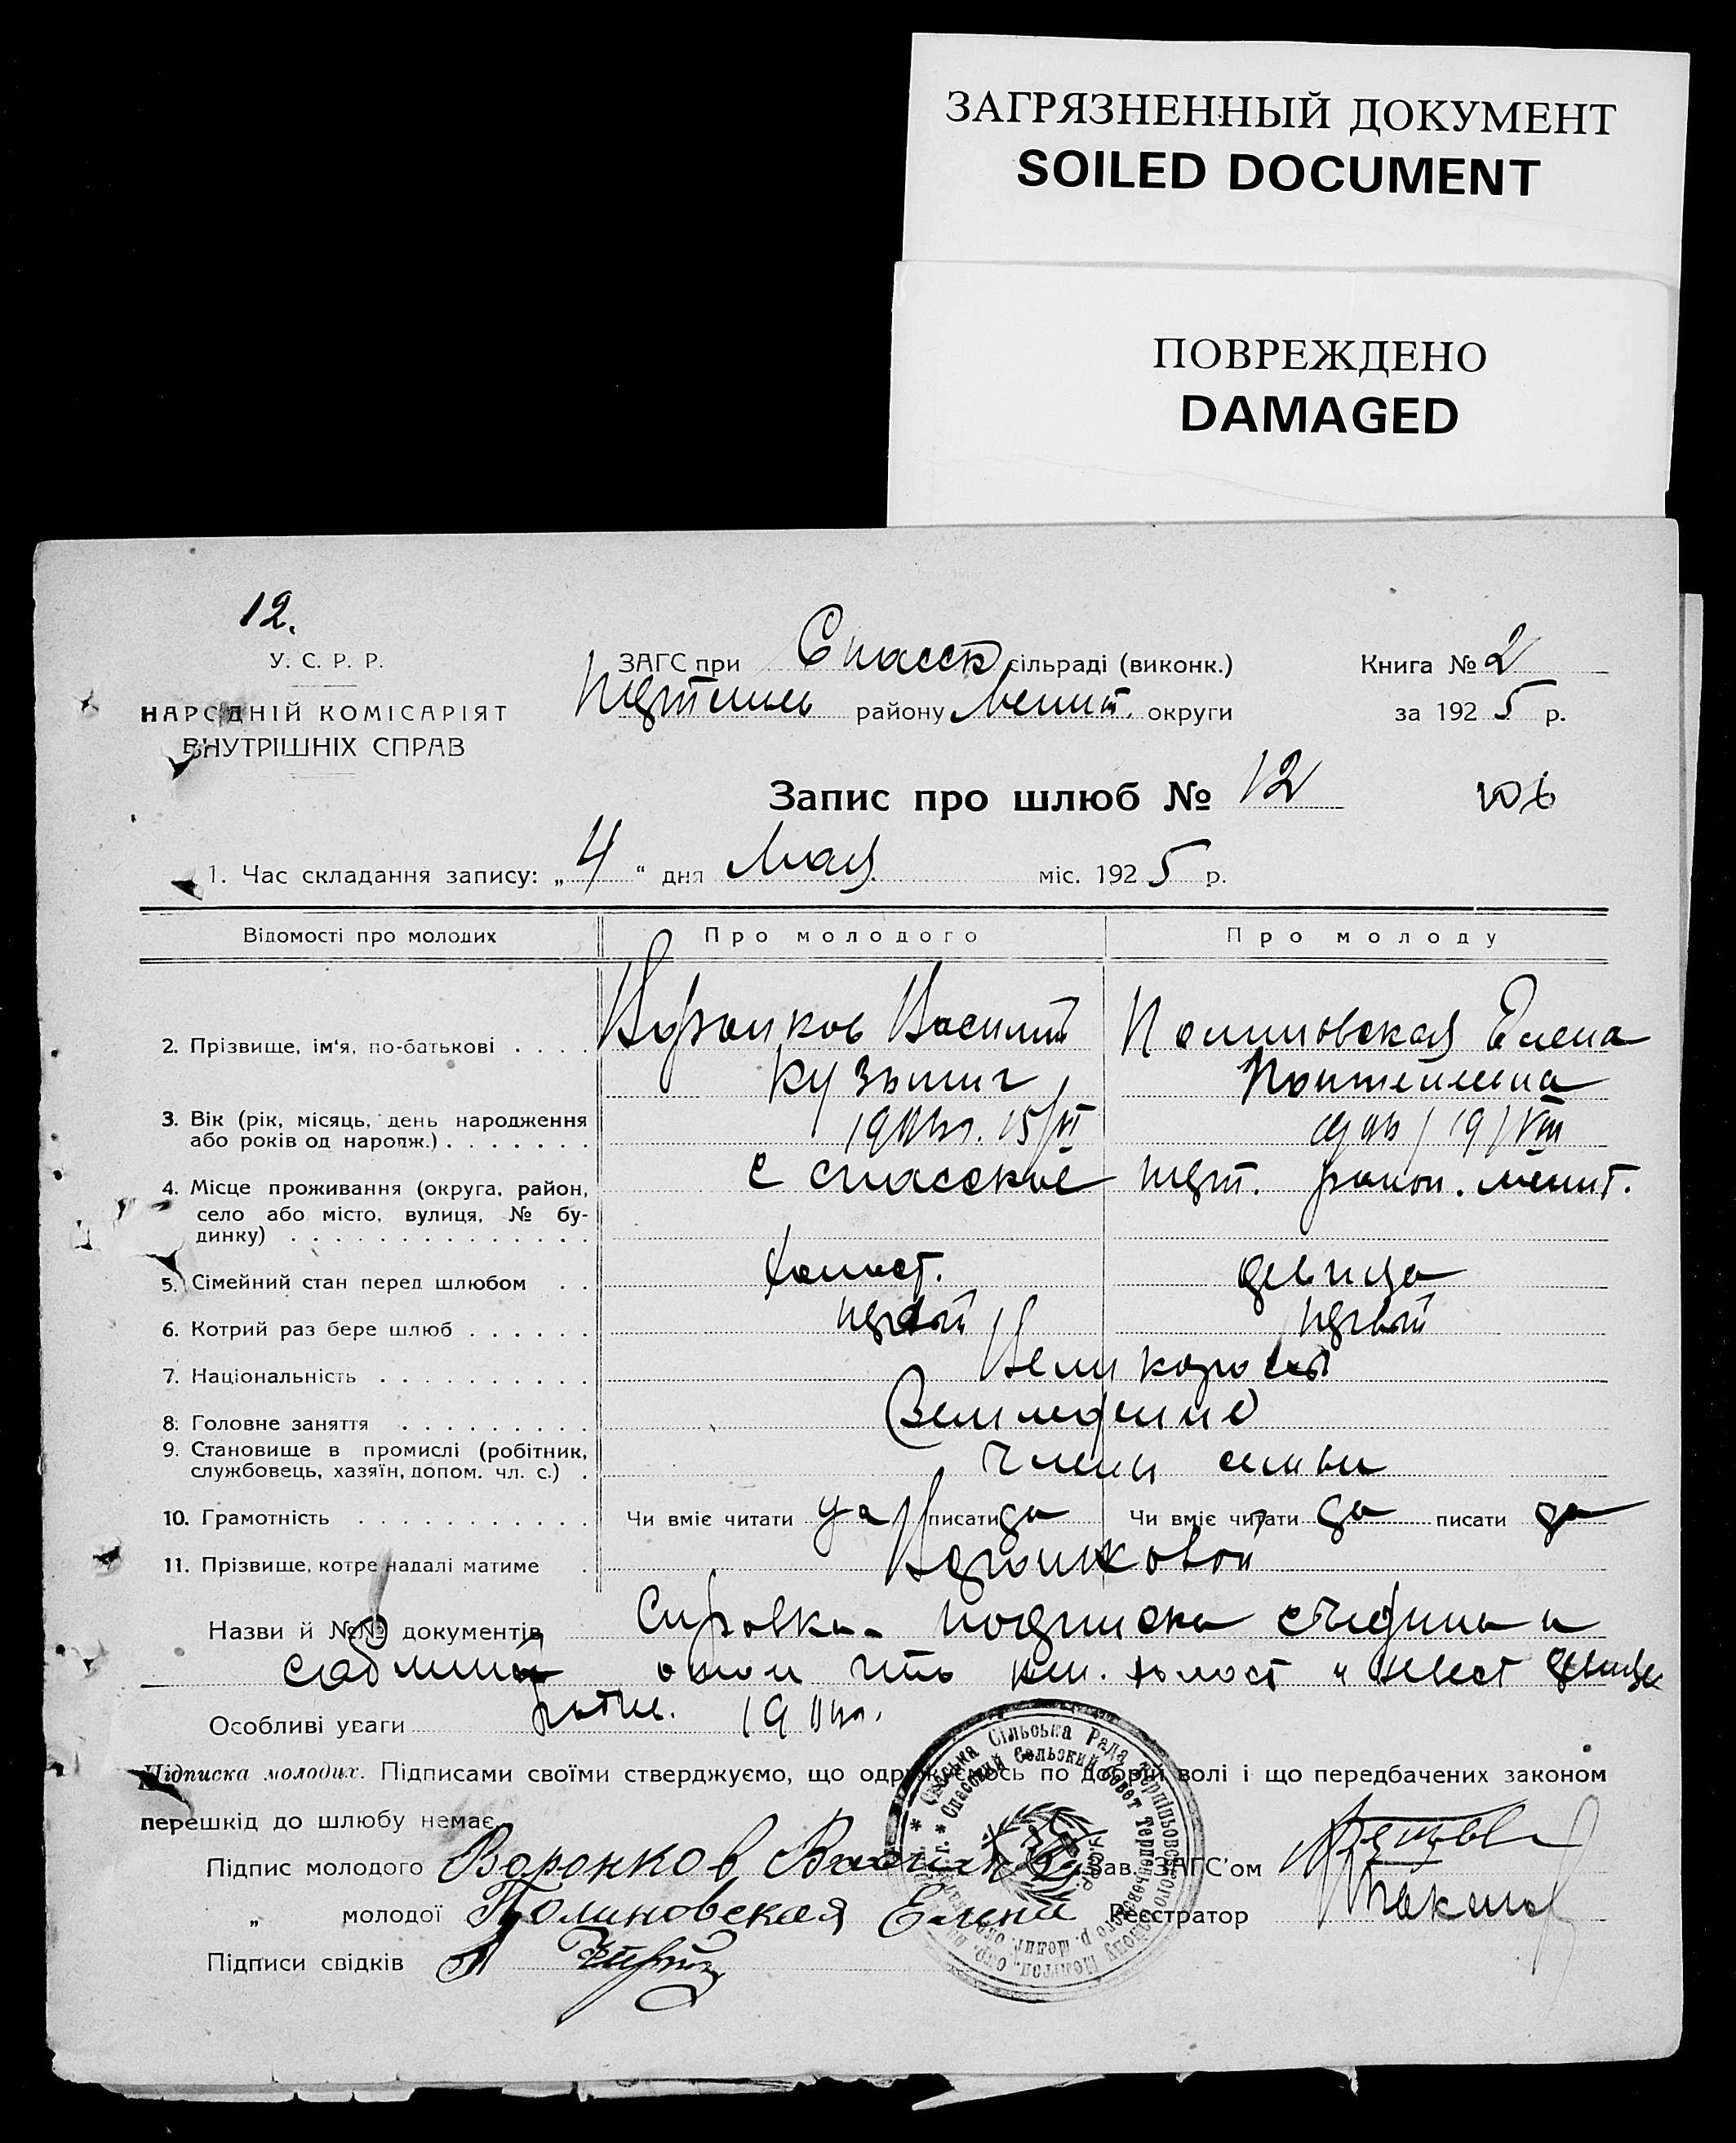 ЗАГРЯЗНЕННЫЙ ДОКУМЕНТ
SOILED DOCUMENT
ПОВРЕЖДЕНО
DAMAGED
12.
У. С. Р. Р.
НАРОДНІЙ КОМІСАРІЯТ
ВНУТРІШНІХ СПРАВ
ЗАГС при Спасск сільраді (виконк.)
району Мелит. округи
Книга № 2
за 1925 р.
Запис про шлюб № 12
1. Час складання запису: „4“ дня Мая міс. 1925 р.
Відомості про молодих Про молодого Про молоду
2. Прізвище, ім'я, по-батькові . . . . Воронков Василий Полиновская Елена
Кузьмич
3. Вік (рік, місяць, день народження
або років од народж.) . . . . . . . 15/VI 19/VIII
4. Місце проживання (округа, район, с спасское терп. район. мелит.
село або місто, вулиця, № бу-
динку) . . . . . . . . . . . . . .
5. Сімейний стан перед шлюбом . . холост. девица
6. Котрий раз бере шлюб . . . . . . первый первый
7. Національність . . . . . . . . . . Великороссы
8. Головне заняття . . . . . . . . . Земледелие
9. Становище в промислі (робітник,
службовець, хазяїн, допом. чл. с.) . члены семьи
10. Грамотність . . . . . . . . . . . Чи вміє читати да писати да Чи вміє читати да писати да
11. Прізвище, котре надалі матиме . Воронковой
Назви й №№ документів Справка подписка
что холост и невест девица
Особливі уваги
Підписка молодих. Підписами своїми стверджуємо, що одружуємось по добрій волі і що передбачених законом
перешкід до шлюбу немає.
Підпис молодого Воронков Василий Зав. ЗАГС'ом
„ молодої Полиновская Елена Реєстратор
Підписи свідків
* Спаська Сільська Рада Терпіньовського району Мелітоп. окр.
* Спасский Сельский Совет Терпеньевского р. Мелит. окр.
У.С.С.Р.